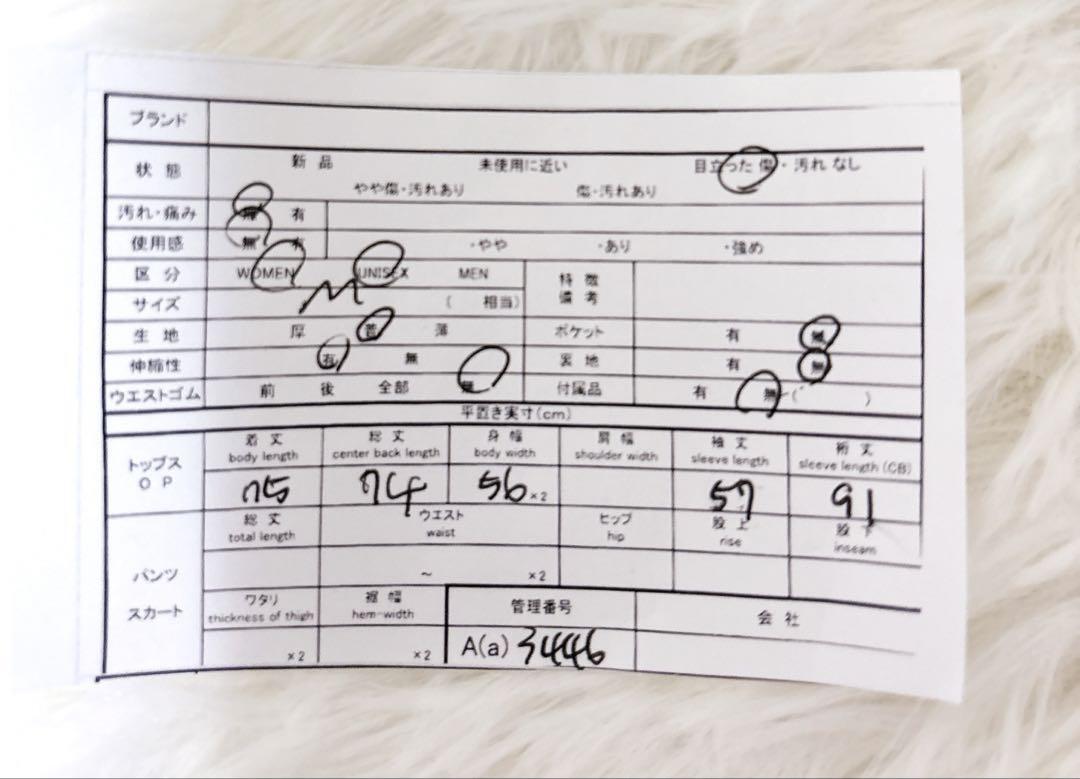 ブランド
状態 新品 未使用に近い 目立った傷・汚れなし
やや傷・汚れあり 傷・汚れあり
汚れ・痛み 無 有
使用感 無 有 ・やや ・あり ・強め
区分 WOMEN UNISEX MEN 特徴
備考
サイズ M ( 相当)
生地 厚 普 薄 ポケット 有 無
伸縮性 有 無 裏地 有 無
ウエストゴム 前 後 全部 無 付属品 有 無 ( )
平置き実寸(cm)
トップス
OP
着丈 総丈 身幅 肩幅 袖丈 裄丈
body length center back length body width shoulder width sleeve length sleeve length (CB)
75 74 56 ×2 57 91
総丈 ウエスト ヒップ 股上 股下
total length waist hip rise inseam
パンツ
スカート
~ ×2
ワタリ 裾幅 管理番号 会社
thickness of thigh hem-width
×2 ×2 A(a) 3446